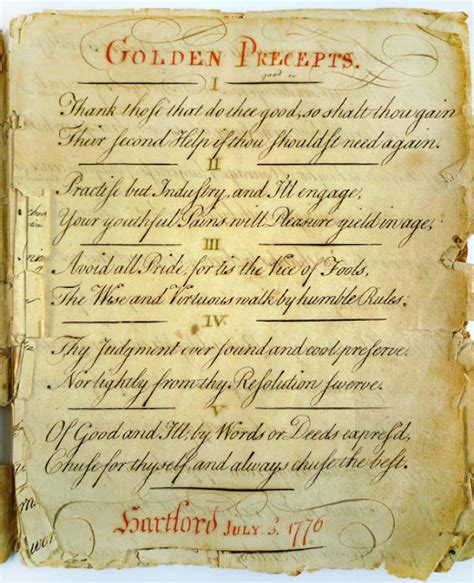 GOLDEN PRECEPTS.
I
Thank those that do thee good, so shalt thou gain
Their second Help if thou shouldst need again.
II
Practise but Industry, and I'll engage,
Your youthful Pains will Pleasure yield in age,
III
Avoid all Pride, for tis the Vice of Fools,
The Wise and Virtuous walk by humble Rules,
IV.
Thy Judgment ever sound and cool preserve,
Nor lightly from thy Resolution swerve.
V
Of Good and Ill, by Words or Deeds expres'd,
Chuse for thyself, and always chuse the best.
Hartford JULY 3. 1776